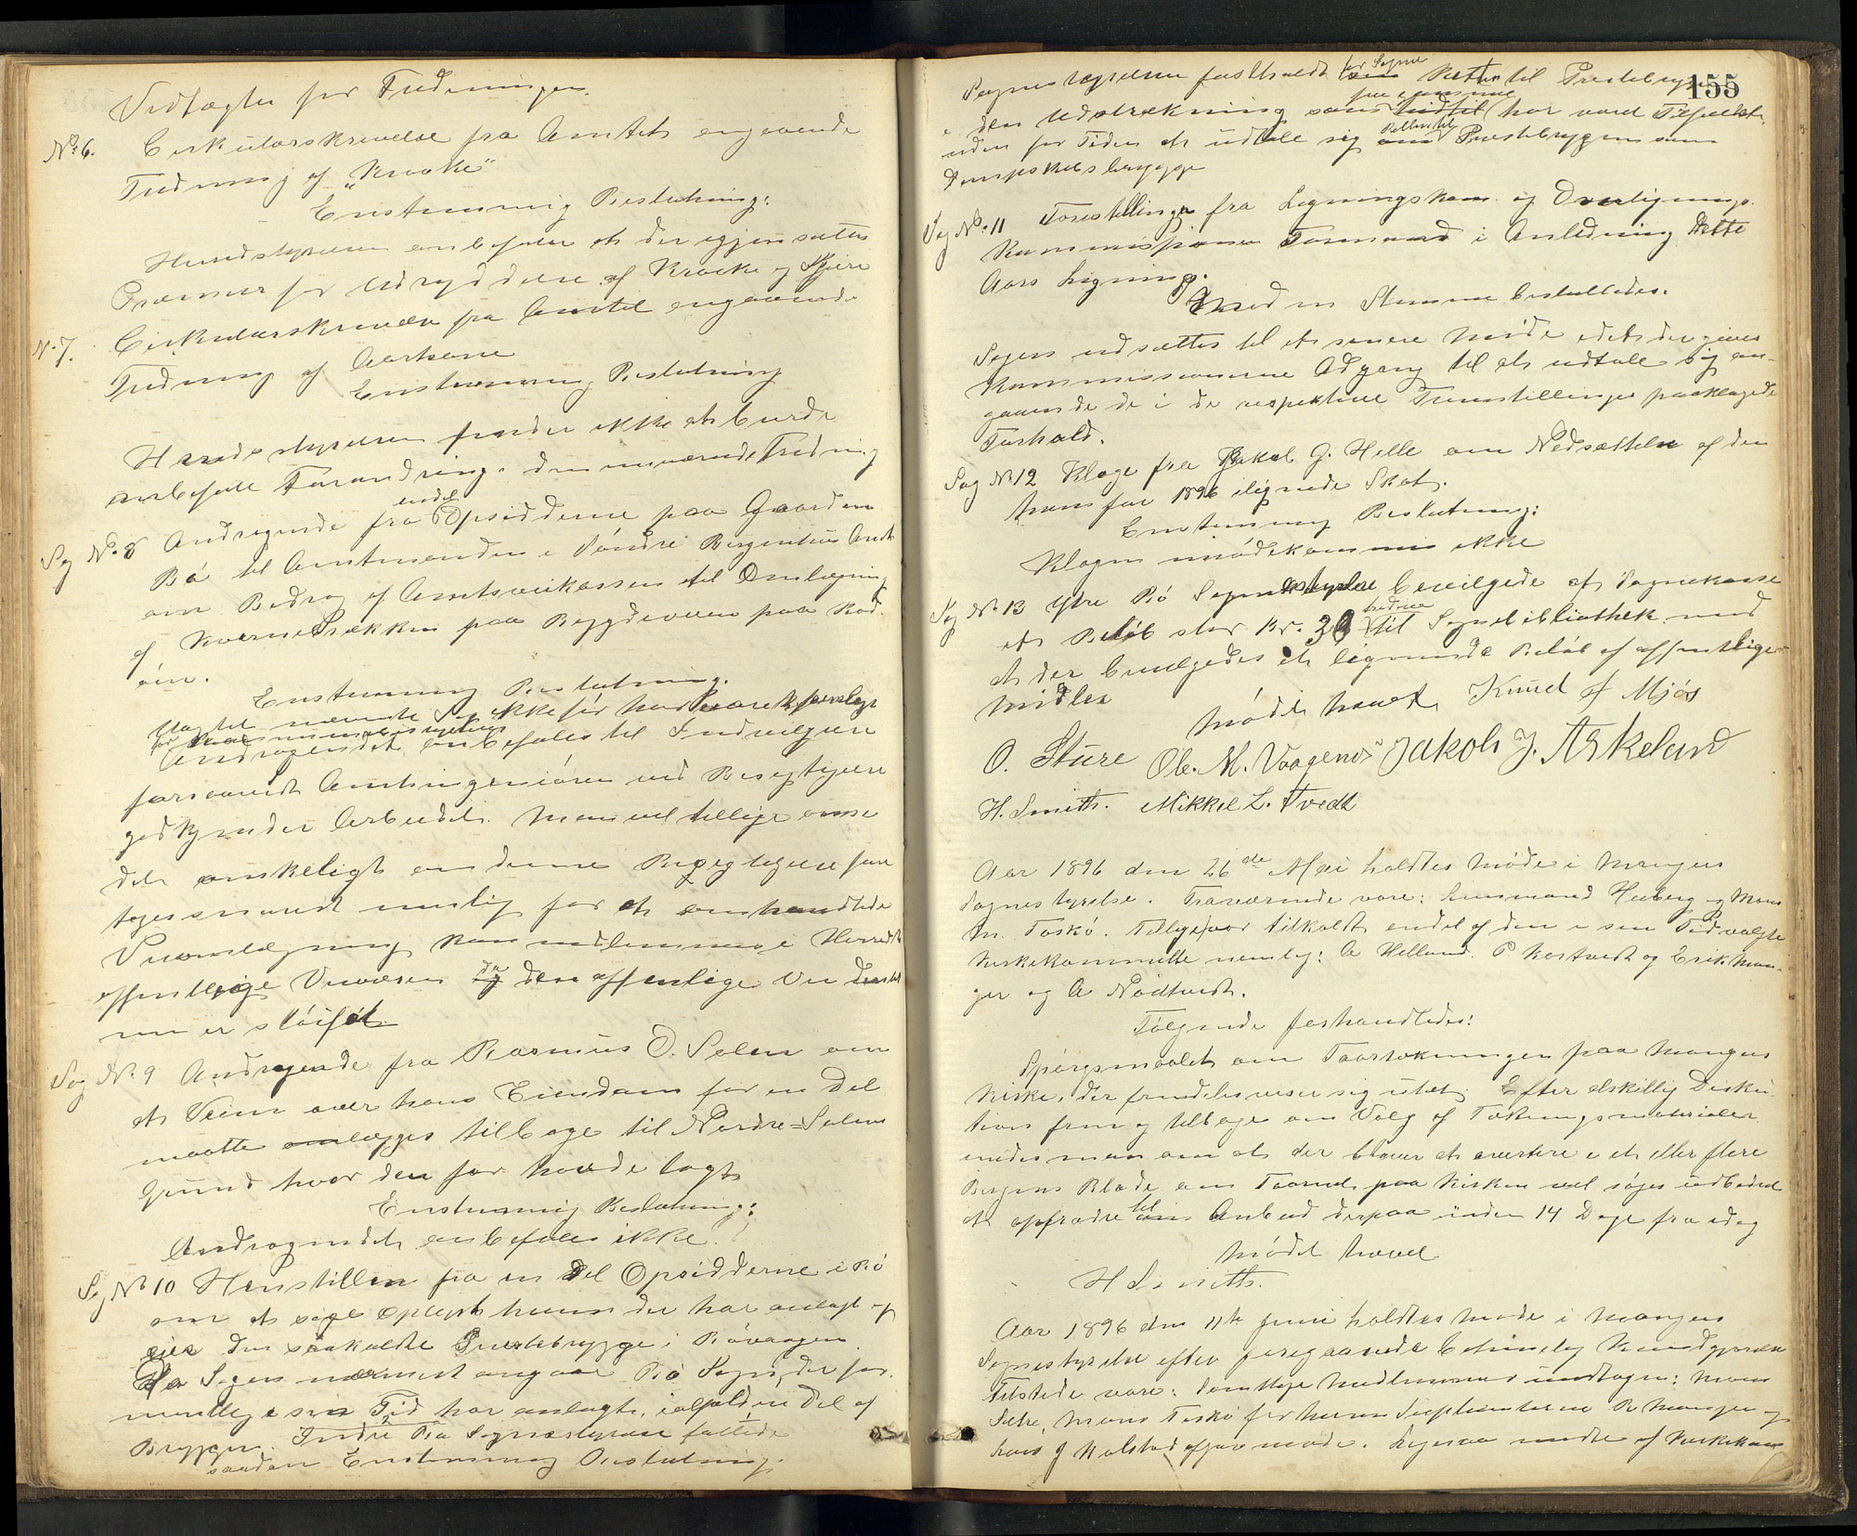 Vedtægter for Fredningen.
No. 6. Cirkulærskrivelse fra Amtet angaaende
Fredning af "Kraake"
Enstemmig Beslutning:
Herredstyrelsen anbefaler at der igjen sættes
Præmier for Udryddelse af Kraake og Skjære
N. 7. Cirkulærskrivelse fra Amtet angaaende
Fredning af Aarhane
Enstemmig Beslutning
Herredsstyrelsen finder ikke at burde
anbefale Forandring i den nuværende Fredning
Sag No. 8 Andragende fra endel Opsidderne paa Gaarden
Bø til Amtmanden i Søndre Bergenhus Amt
om Bidrag af Amtsveikassen til Omlægning
af Kverne bækken paa Bygdeveien paa Rad-
øen.
Enstemmig Beslutning.
ikke før har været forelagt
for
Andragendet anbefales til Indvilgelse
forsaavidt Amtsingeniøren ved Besigtigelse
godkjender Arbeidet. Man vil tillige anse
det ønskeligt om denne Besigtigelse fore
toges snarest mulig for at omhandlede
Veiomlægning kan indlemmes i Herredets
offentlige Veivæsen da den offenlige Vei
nu er sløifet
Sag N. 9 Andragende fra Rasmus O. Solem om
at Veien over hans Eiendom for en Del
maatte omlægges tilbage til Nordre-Solems
Grund hvor den før havde lagt
Enstemmig Beslutning:
Andragendet anbefales ikke.
Sag No 10 Henstillen fra en Del Opsidderne i Bø
om at søge oplyst hvem der har anlagt og
eier den saakaldte Prestebrygge i Bøvaagen
Da Sagen nærmest angaar Bø Sogn, der for-
mentlig i sin Tid har anlagt, ialfald en Del af
Bryggen. Indre Bø Sognestyrelse fattede
saadan Enstemmig Beslutning.
155
Sognestyrelsen fastholdt for Sogne Retten til Prestebryggen
i den Udstrækning som har været Tilfældet,
uden for Tiden at udtale sig om Prestebryggen som
Dampskibsbrygge
Sag No. 11 Forestillinger fra Ligningskom. og Overlignings-
Kommissionens Formænd i Anledning dette
Aars Ligning.
Imod en Stemme besluttedes.
Sagen udsættes til et senere Møde idet der gives
Kommissionerne Adgang til at udtale sig an-
gaaende de i de respektive Fremstillinger paaklagede
Forhold.
Sag No 12 Klage fra Jakob G. Helle om Nedsættelse af den
ham for 1896 ilignede Skat.
Enstemmig Beslutning:
Klagen imødekommes ikke
Sag No 13 Ytre Bø Sognestyrelse bevilgede af Sognekasse
et Beløb stor Kr. 30 tredive til Sognebibliothek mod
at der bevilgedes et lignende Beløb af offentlige
Midler
Mødet hævet Knud A Mjøs
O. Sture Ole. M. Vaagenes Jakob J. Askeland
H. Smith. Mikkel L. Tvedt
Aar 1896 den 26de Mai holdtes Møde i Mangers
Sognestyrelse. Fraværende vare: Lensmand Heiberg og Mons
M. Toskø. Tillige var tilkaldt endel af den i sin Tid valgte
Kirkekommitte nemlig: A Helland. P Kortvedt og Erik Man-
ger og A Nødtvedt.
Følgende forhandledes:
Spørgsmaalet om Taartækningen paa Mangers
Kirke, der fremdeles viser sig utæt. Efter adskillig Disku-
tion frem og tilbage om Valg af Tækningsmaterialer
enedes man om at der bliver at avertere i et eller flere
Bergens Blade om Taarnet paa Kirken vil søges udbedret
at opfordre til Anbud derpaa inden 14 Dage fra idag
Mødet hævet
H Smith.
Aar 1896 den 11te Juni holdtes Møde i Mangers
Sognestyrelse efter foregaaende behørig Kundgjørelse
Tilstede vare: samtlige Medlemmer undtagen: Mons
Sætre, Mons Toskø for hvem Suplianterne R Manger og
Lars J Halstad afgav møde. Ligesaa mødte af Kirkekom